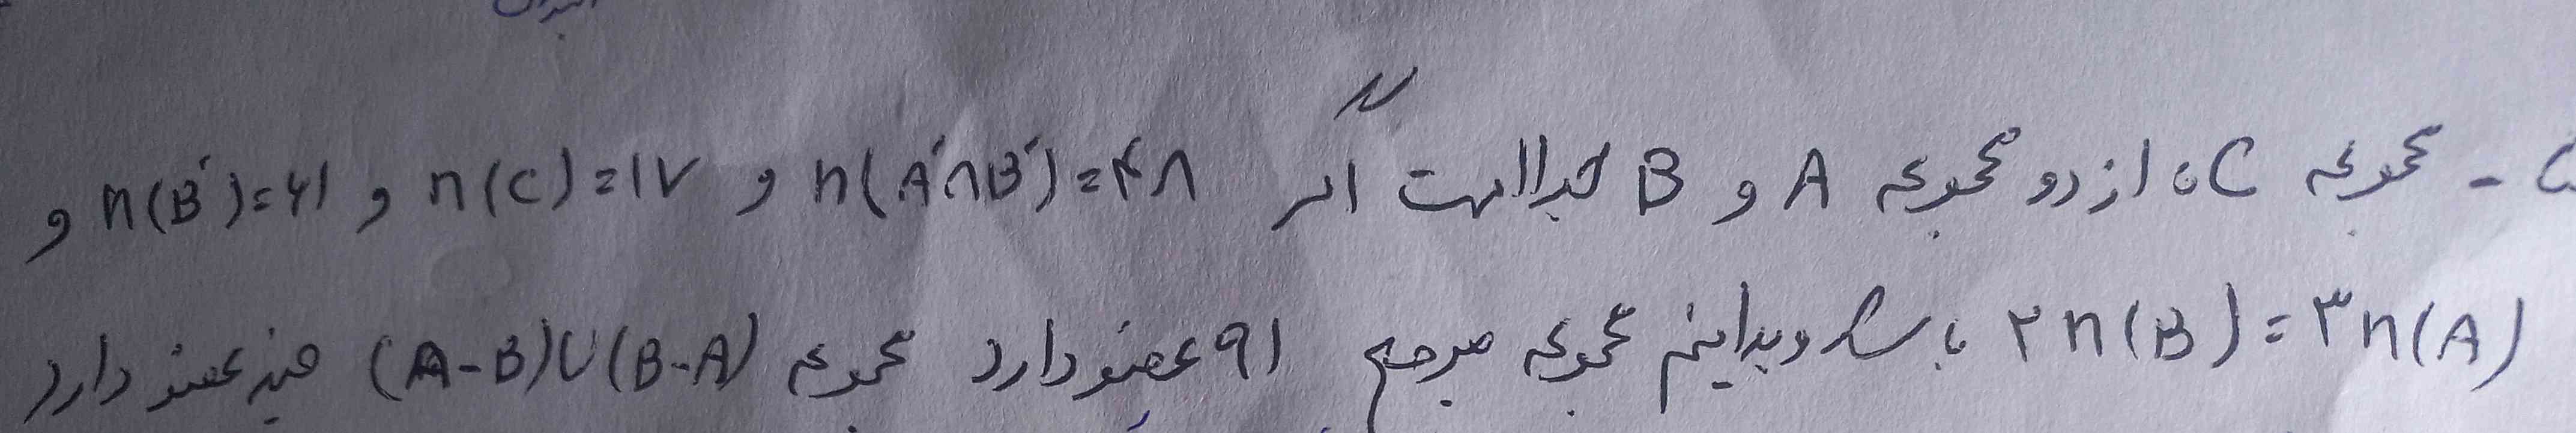 - مجموعه C، از دو مجموعه A و B جدا است اگر n(A'∩B')=۴۸ و n(C)=۱۷ و n(B')=۶۱ و
۲n(B)=۳n(A) باشد و بدانیم مجموعه مرجع ۹۱ عضو دارد مجموعه (A-B)∪(B-A) چند عضو دارد